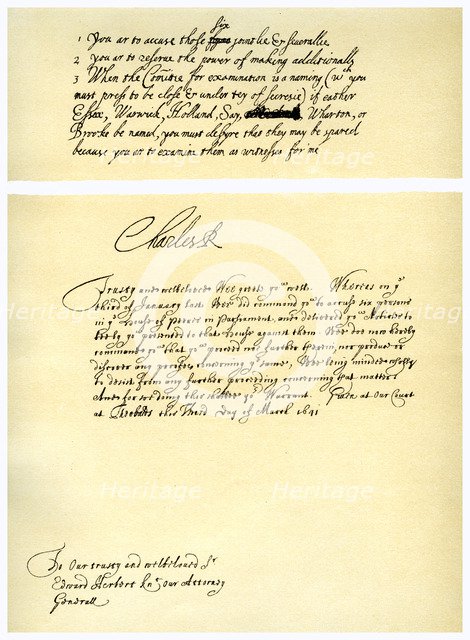 six
1 You ar to accuse those joinlie & severallie
2 you ar to reserve the power of making additionalls
3 When the Comitie for examination is a naming (wch you
must press to be close & under tey of secresie) if eather
Essex, Warwick, Holland, Say, Wharton, or
Brooke be named, you must desyre that they may be spared
because you ar to examine them as witnesses for me
Charles R
Trusty and welbeloved Wee greete you well. Whereas on ye
third of January last Wee did command you to accuse six persons
in ye House of Peeres in Parliament, and delivered you Articles to
bee by you presented to that House against them Wee doe now hereby
command you that you proceed no further therein, nor produce or
discover any proofes concerning ye same, Wee being minded wholly
to desist from any further proceeding concerning that matter
And for so doing this shalbee yor Warrant. Given at Our Court
at this third day of March 1641
To Our trusty and welbeloved Sr
Edward Herbert Knt Our Attorney
Generall
Heritage
Heritage
Heritage
Heritage